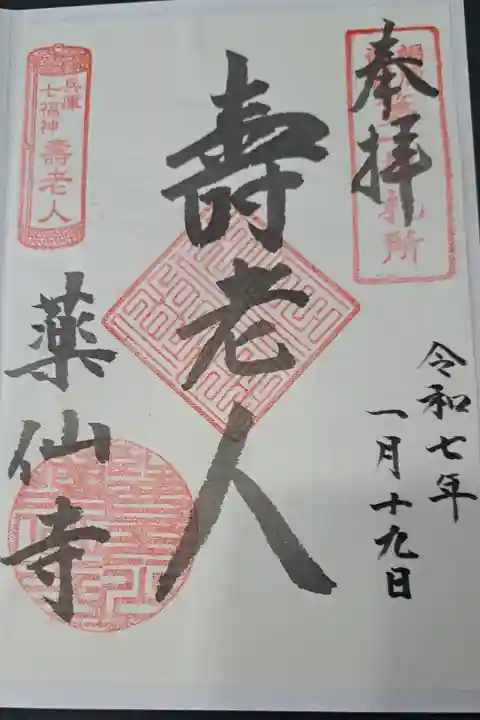 奉拝
令和七年
一月十九日
壽老人
兵庫
七福神
壽老人
薬仙寺
札所